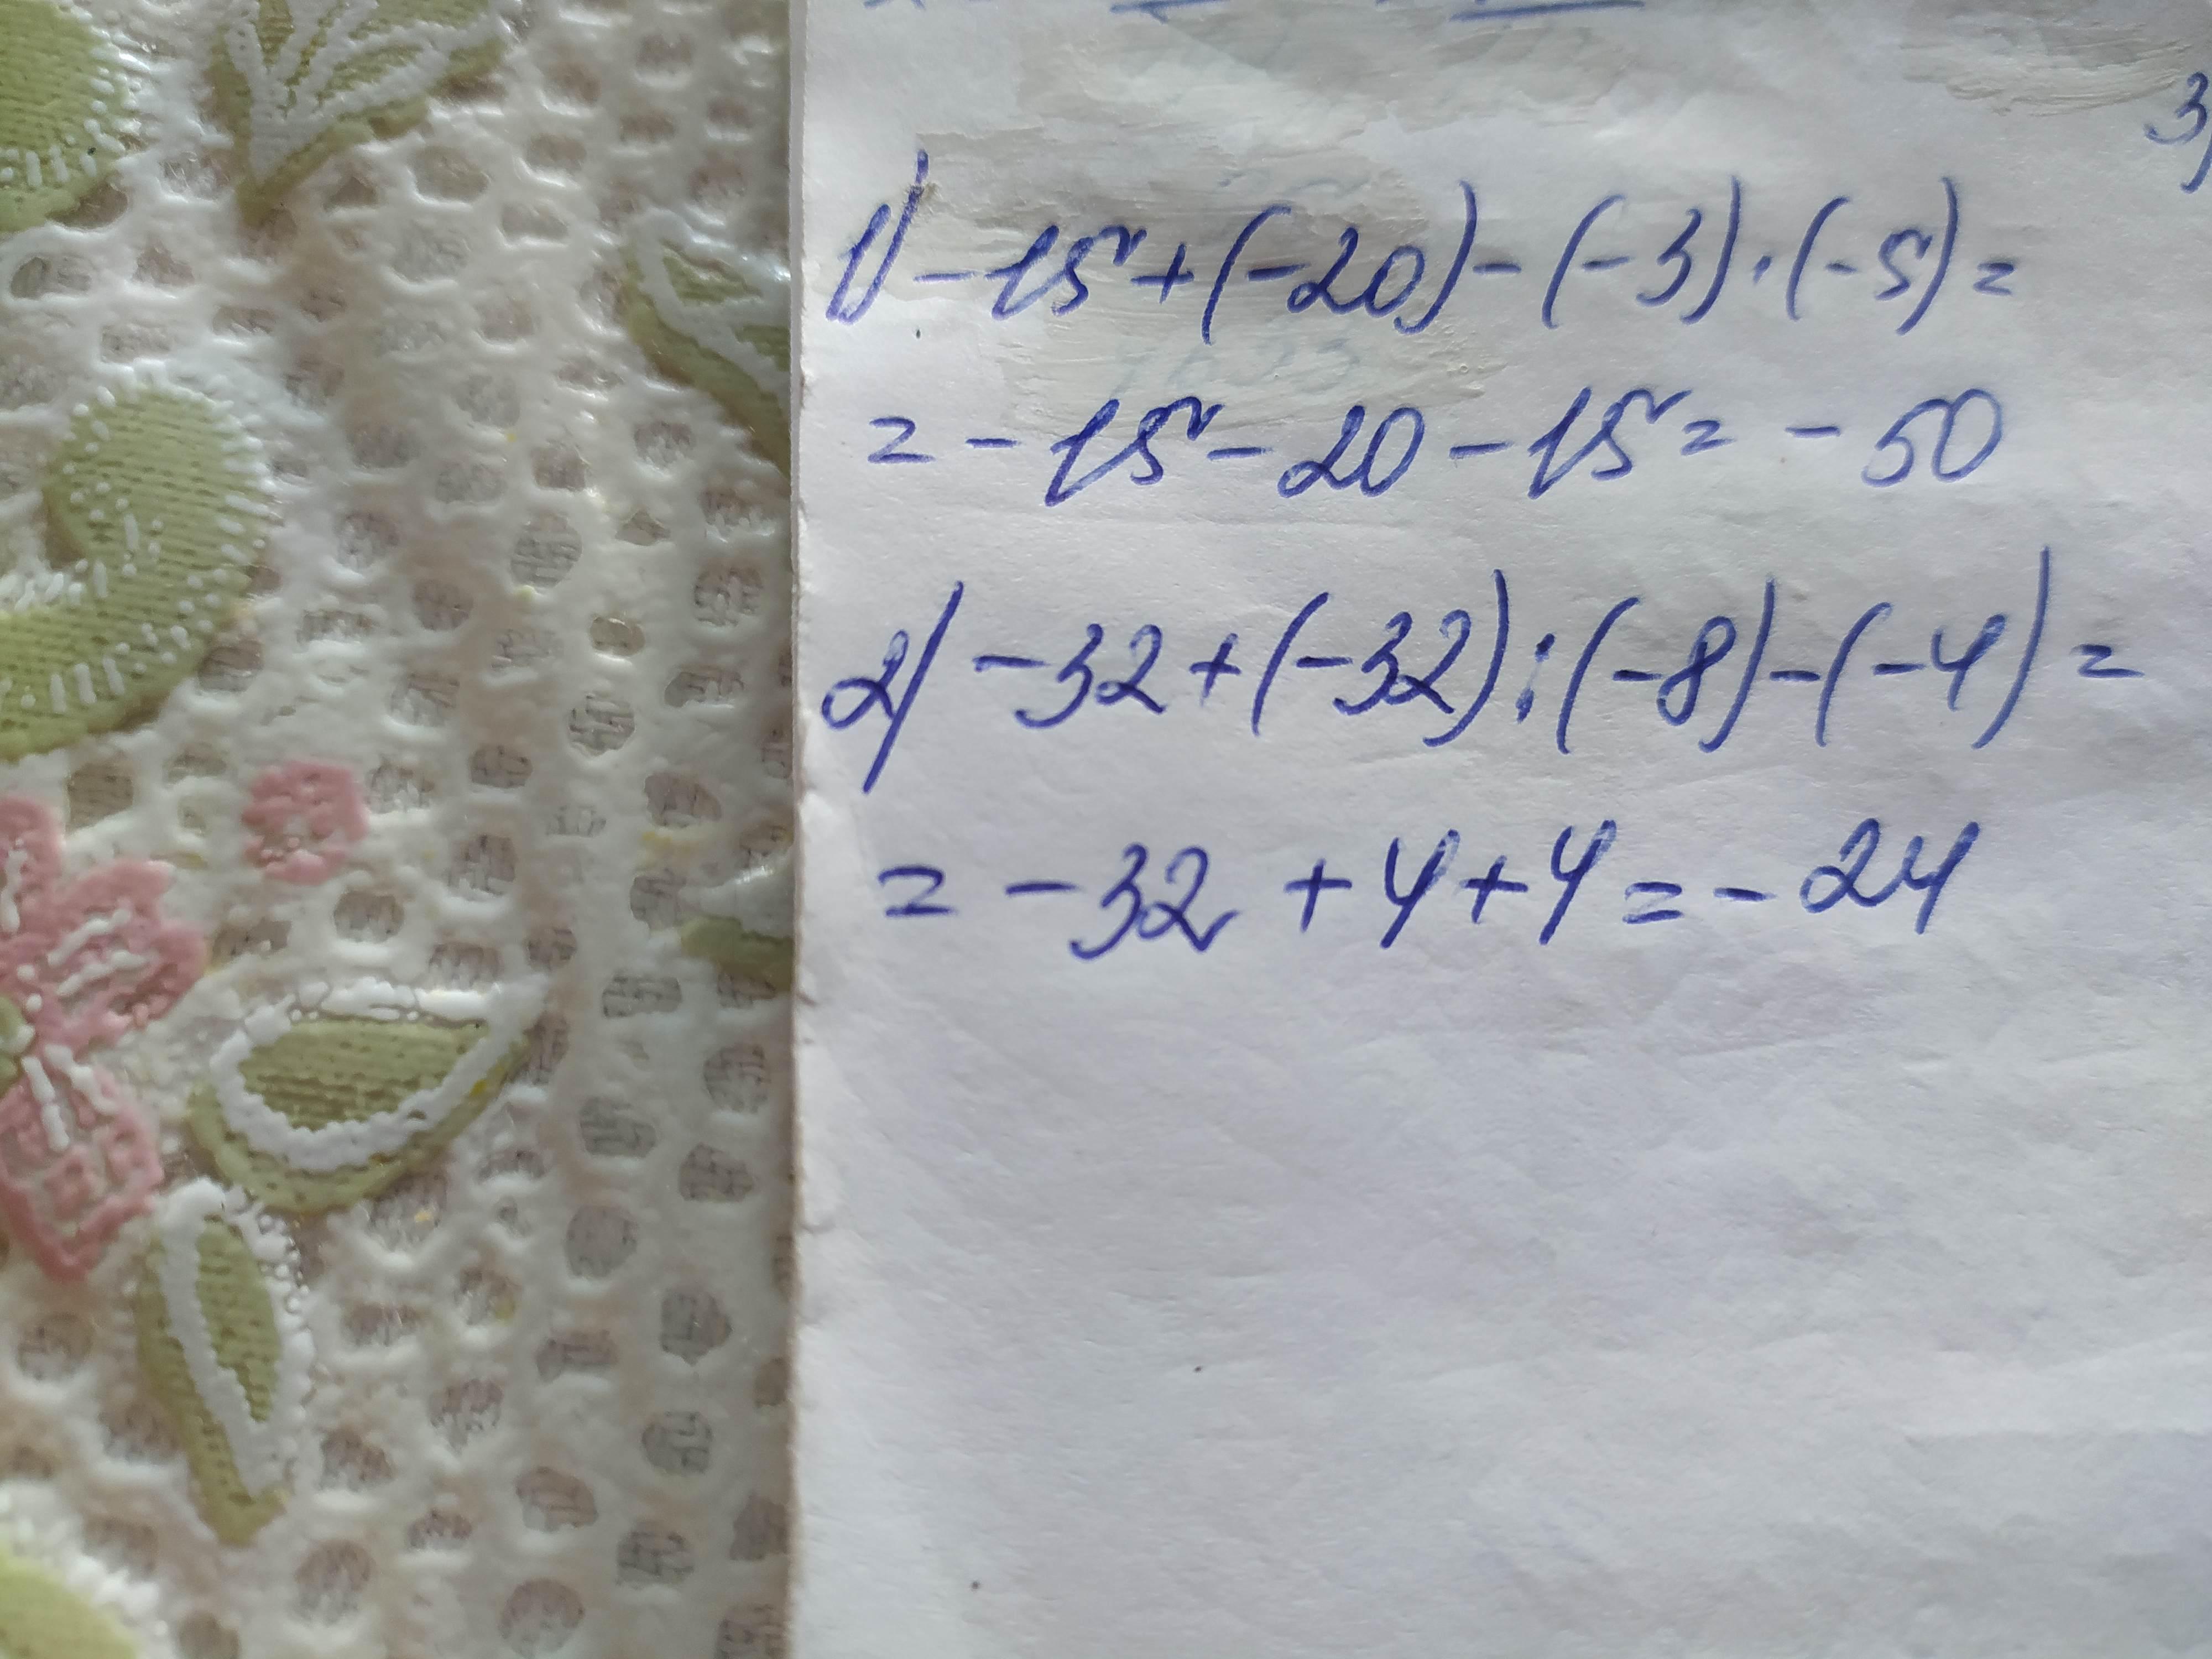 3)
1) -15 + (-20) - (-3) · (-5) =
= -15 - 20 - 15 = -50
2) -32 + (-32) : (-8) - (-4) =
= -32 + 4 + 4 = -24